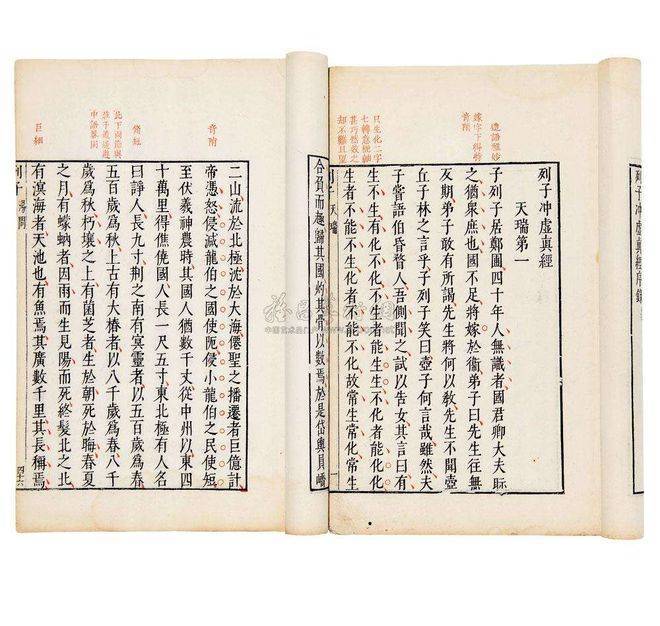 列子冲虛真經
列子冲虛真經
天瑞第一
造語雖妙
嫁字下得奇
子列子居鄭圃四十年人無識者國君卿大夫眎
之猶衆庶也國不足將嫁於衞弟子曰先生往無
反期弟子敢有所謁先生將何以教先生不聞壺
丘子林之言乎子列子笑曰壺子何言哉雖然夫
子嘗語伯昏瞀人吾側聞之試以告女其言曰有
只生化二字
生不生有化不化不生者能生生不化者能化化
生者不能不生化者不能不化故常生常化常生
列子 天瑞
合負而趣歸其國灼其骨以數焉於是岱輿員嶠
二山流於北極沈於大海僊聖之播遷者巨億計
帝憑怒侵減龍伯之國使阨侵小龍伯之民使短
至伏羲神農時其國人猶數千丈從中州以東四
十萬里得僬僥國人長一尺五寸東北極有人名
曰諍人長九寸荆之南有冥靈者以五百歲爲春
五百歲爲秋上古有大椿者以八千歲爲春八千
歲爲秋朽壤之上有菌芝者生於朝死於晦春夏
之月有蠓蚋者因雨而生見陽而死終髮北之北
巨細
有溟海者天池也有魚焉其廣數千里其長稱焉
列子 湯問 四十六